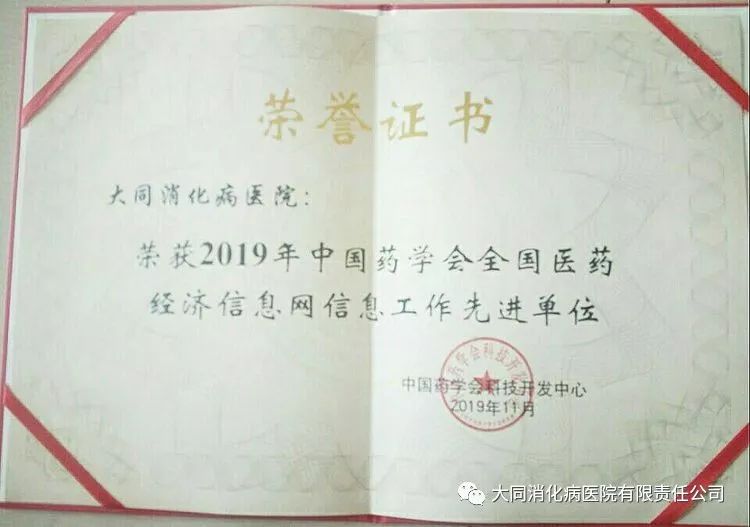 荣誉证书
大同消化病医院：
荣获2019年中国药学会全国医药
经济信息网信息工作先进单位
中国药学会科技开发中心
2019年11月
大同消化病医院有限责任公司